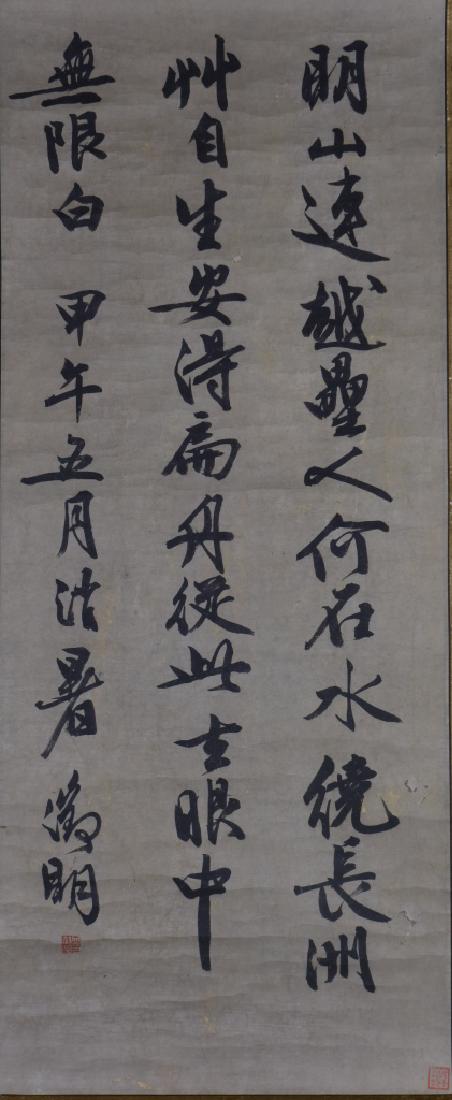 明山連越壘人何在水繞長洲
艸自生安得扁舟從此去眼中
無限白 甲午五月暑 徵明